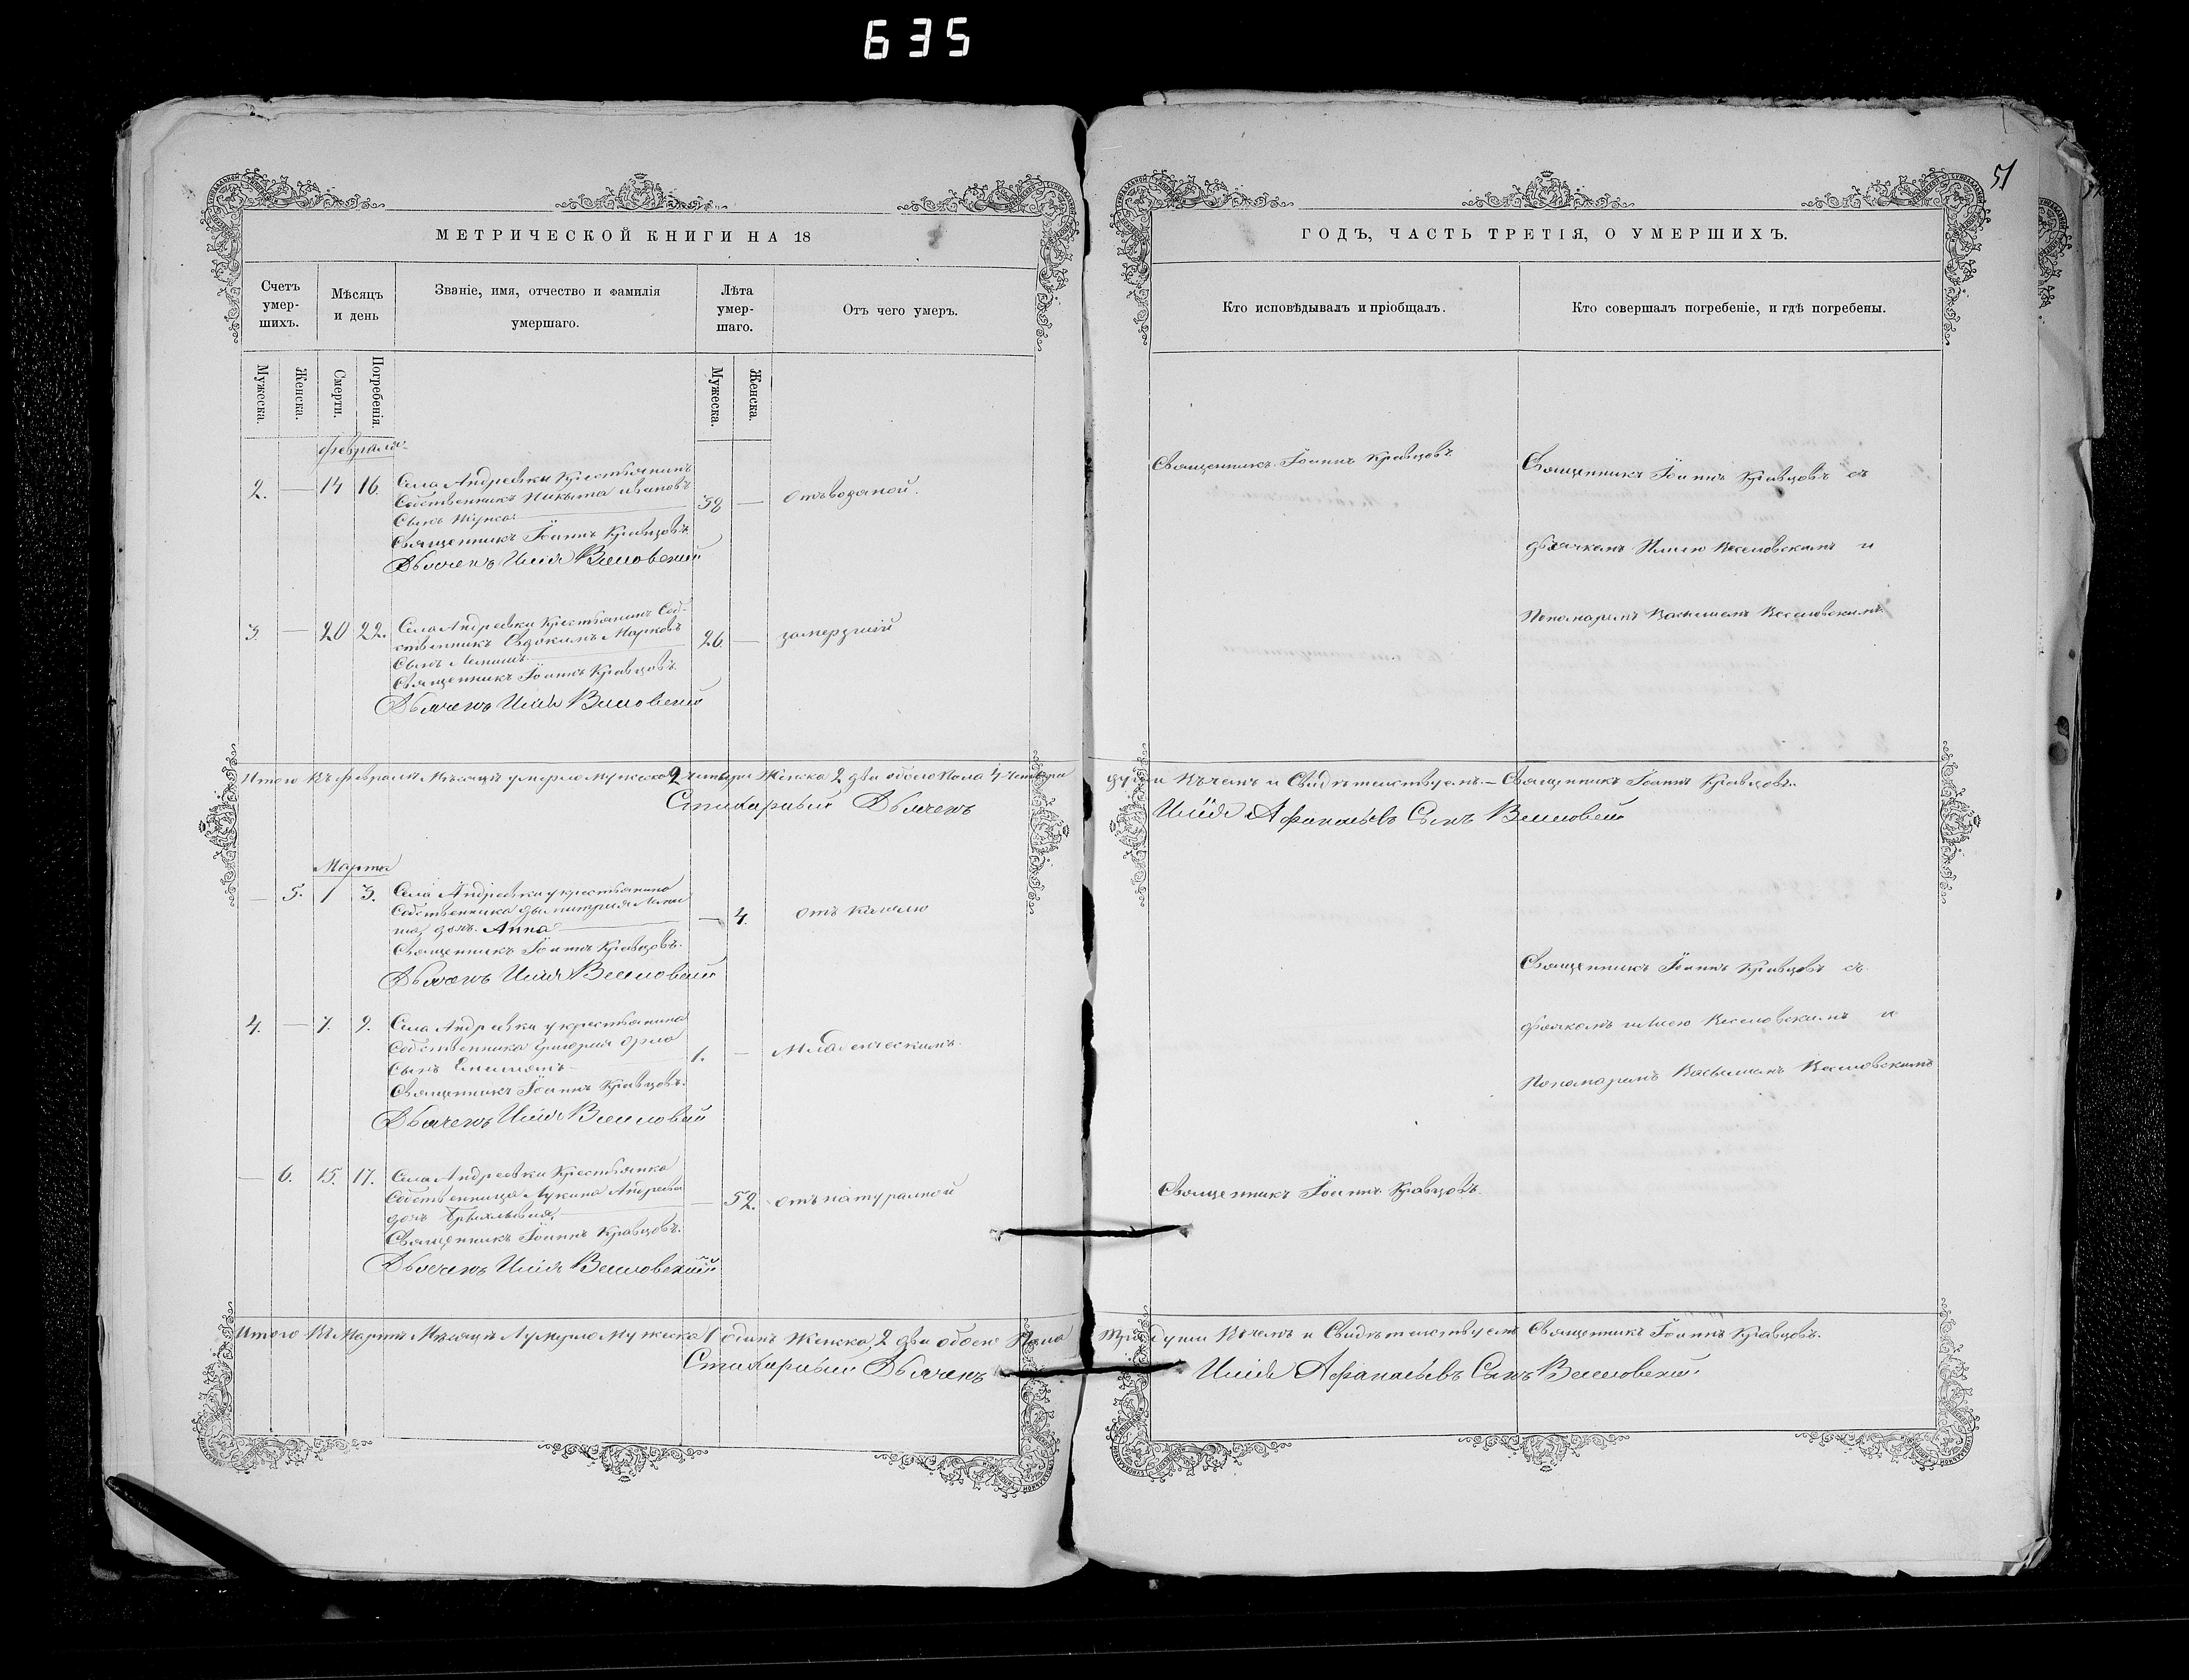 635
51
МЕТРИЧЕСКОЙ КНИГИ НА 18
Счетъ умер-
шихъ.
Мѣсяцъ
и день
Званіе, имя, отчество и фамилія
умершаго.
Лѣта
умер-
шаго.
Отъ чего умеръ.
Мужеска.
Женска.
Смерти.
Погребенія.
Мужеска.
Женска.
Февраля
2. — 14 16. Села Андреевки Крестьянинъ
Собственникъ Никита Ивановъ
Сынъ
58 — отъ водяной.
Священникъ Іоаннъ Кравцовъ.
Дьячекъ Илія Веселовский
3 — 20 22. Села Андреевки Крестьянинъ Соб-
ственникъ Евдокимъ Марковъ
Сынъ
26. — замерзшій
Священникъ Іоаннъ Кравцовъ.
Дьячекъ Илія Веселовский
Итого Въ февралѣ Мѣсяцѣ умерло мужеска 2 Женска 2 два обоего Пола 4 четыри
Стихарный Дьячекъ
Марта
— 5. 1 3. Села Андреевки у крестьянина
Собственника Дымитрия
дочь Анна
— 4. отъ кашлю
Священникъ Іоаннъ Кравцовъ.
Дьячекъ Илія Веселовский
4. — 7. 9. Села Андреевки у крестьянина
Собственника Григория Орла
Сынъ Емелианъ
1. — Младенческимъ.
Священникъ Іоаннъ Кравцовъ.
Дьячекъ Илія Веселовский
— 6. 15. 17. Села Андреевки Крестьянка
Собственница Андреева
дочь
— 52. отъ натуралной
Священникъ Іоаннъ Кравцовъ.
Дьячекъ Илія Веселовский
Итого Въ Мартѣ Мѣсяцѣ умерло Мужеска 1 одинъ Женска 2 два обоего Пола
Стихарный Дьячекъ
ГОДЪ, ЧАСТЬ ТРЕТІЯ, О УМЕРШИХЪ.
Кто исповѣдывалъ и пріобщалъ.
Кто совершалъ погребеніе, и гдѣ погребены.
Священникъ Іоаннъ Кравцовъ.
Священникъ Іоаннъ Кравцовъ съ
дьячкомъ Илиею Веселовскимъ и
Пономаремъ Васылиемъ Веселовскимъ.
души Въ чемъ и Свидѣтелствуемъ. — Священникъ Іоаннъ Кравцовъ.
Илія Афанасьевъ Сынъ Веселовский
Священникъ Іоаннъ Кравцовъ съ
дьячкомъ Илиею Веселовскимъ и
Пономаремъ Васылиемъ Веселовскимъ
Священникъ Іоаннъ Кравцовъ.
три души Въ чемъ и Свидѣтелствуемъ Священникъ Іоаннъ Кравцовъ.
Илія Афанасьевъ Сынъ Веселовский